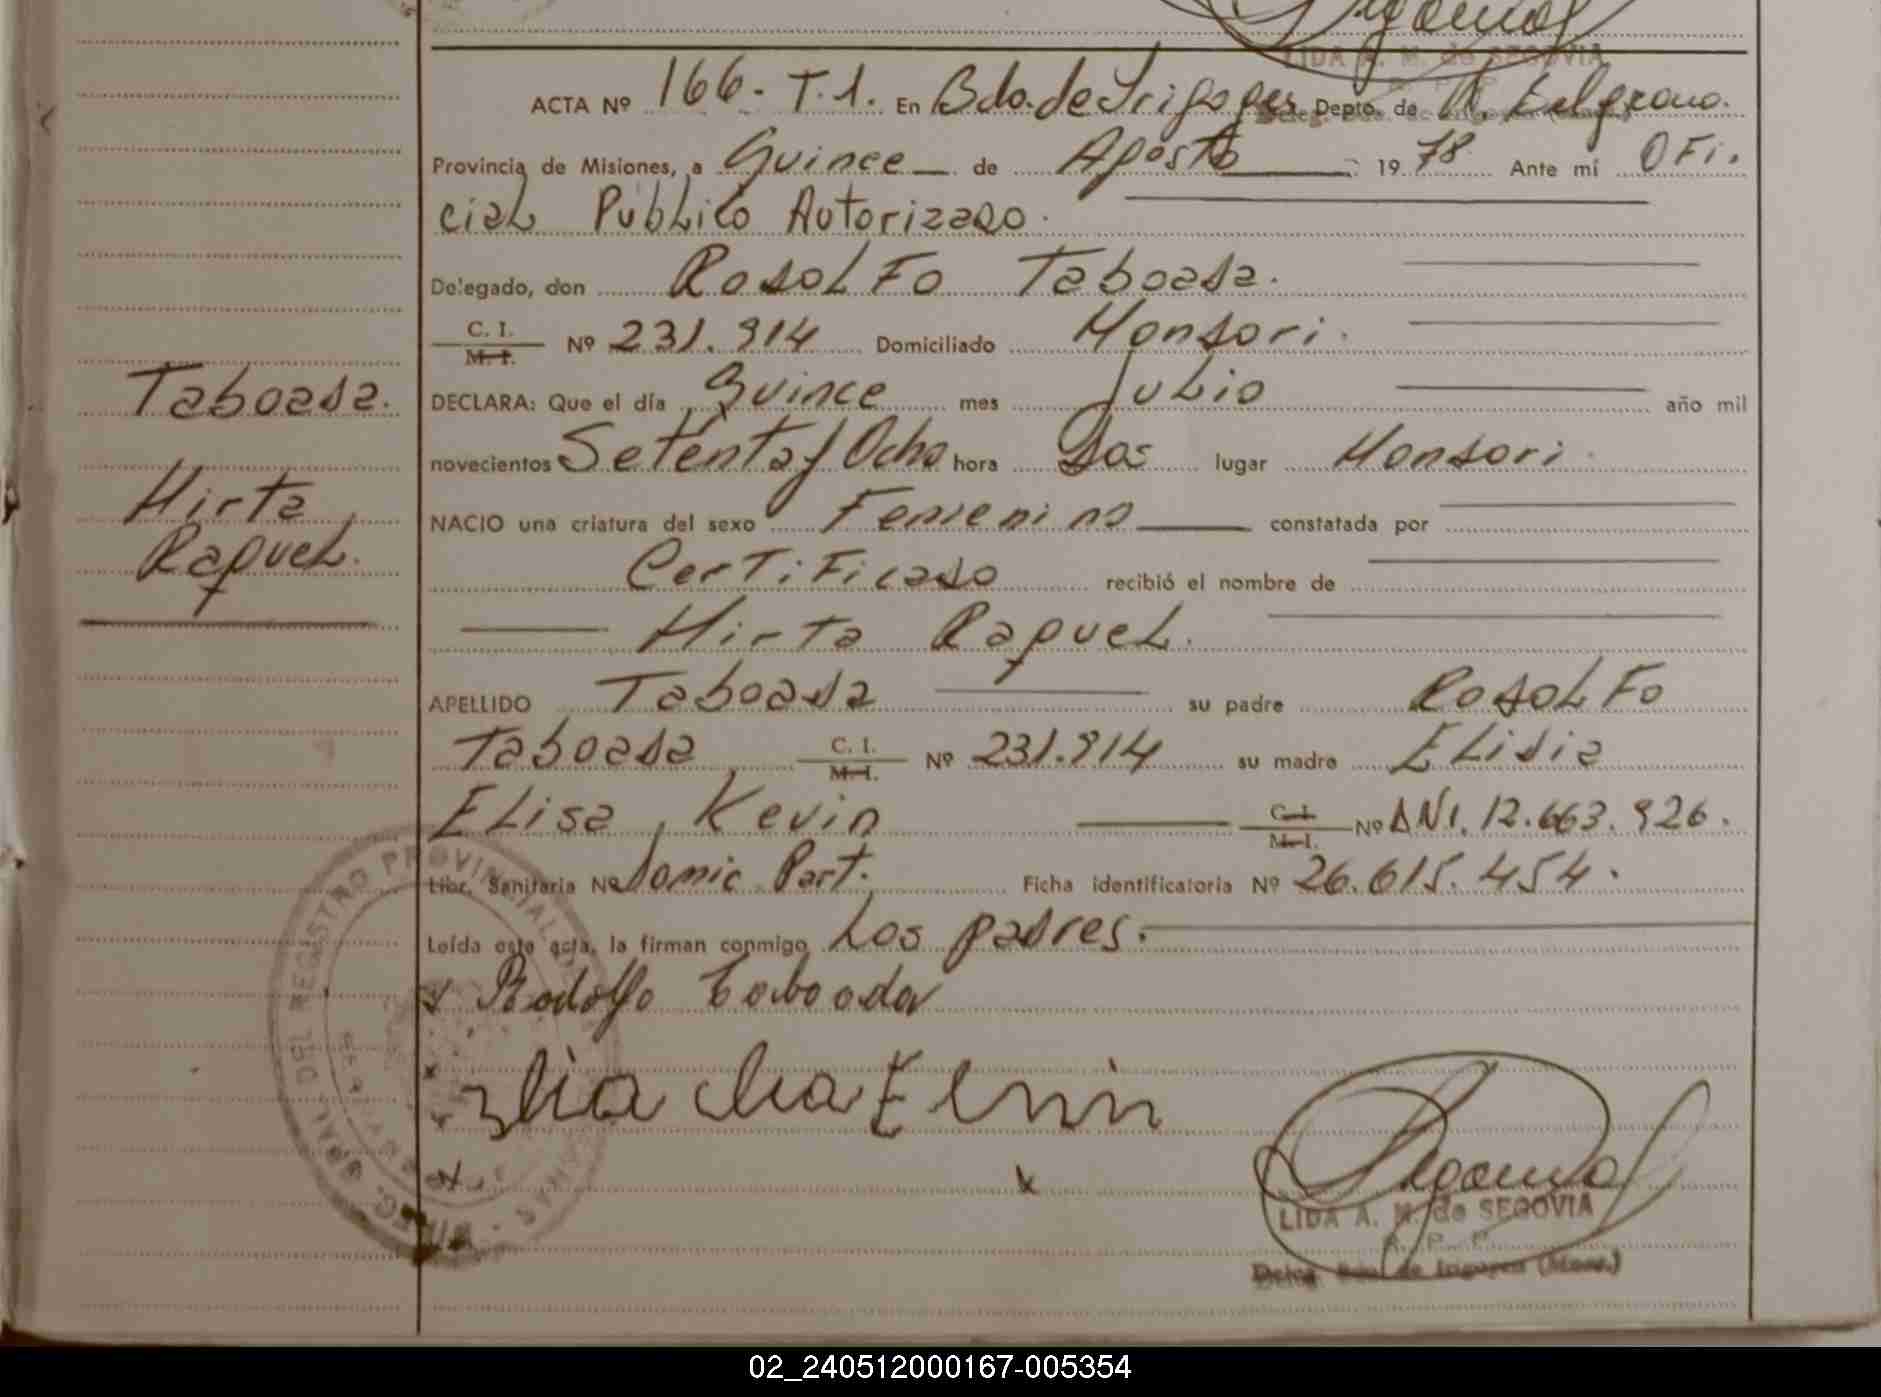 LIDA A. M. de SEGOVIA
ACTA Nº 166 - T.1. En Bdo. de Irigoyen Depto. de M. Belgrano.
Provincia de Misiones, a Quince de Agosto 19 78 Ante mí Ofi.
cial Público Autorizado.
Delegado, don Rodolfo Taboada.
C. I.
M. I.
Nº 231.914 Domiciliado Mondori.
DECLARA: Que el día Quince mes Julio año mil
novecientos Setenta y Ocho hora Dos lugar Mondori.
NACIO una criatura del sexo Femenino constatada por
Certificado recibió el nombre de
Mirta Raquel.
APELLIDO Taboada su padre Rodolfo
Taboada C. I. M. I. Nº 231.914 su madre Elidia
Elisa Kevin C. I. M. I. Nº DNI. 12.663.926.
Libr. Sanitaria Nº Domic Part. Ficha identificatoria Nº 26.615.454.
Leída este acta, la firman conmigo Los padres.
Rodolfo Taboada
LIDA A. M. de SEGOVIA
R. P. P.
Deleg. Bdo. de Irigoyen (Mnes.)
Taboada.
Mirta
Raquel.
02_240512000167-005354